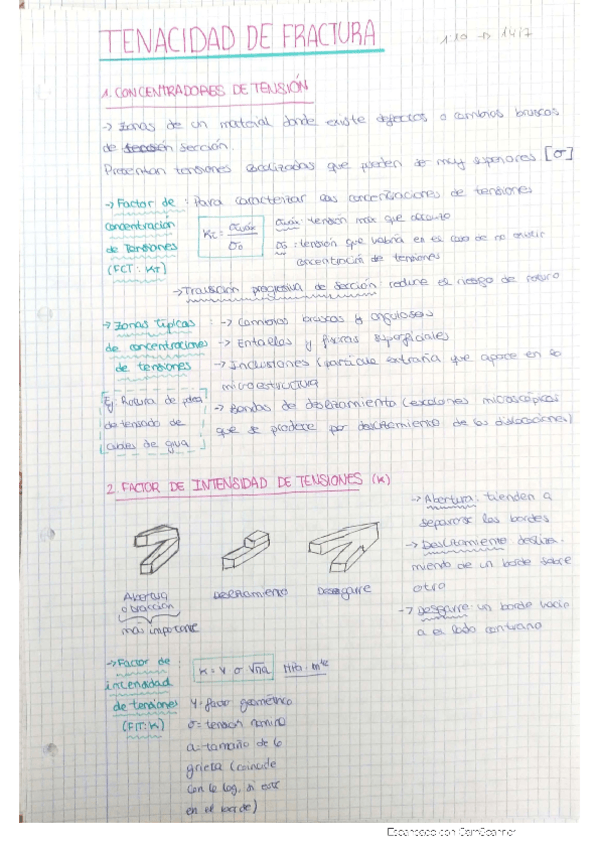 TENACIDAD DE FRACTURA
1. CONCENTRADORES DE TENSIÓN
→ Zonas de un material donde existe defectos o cambios bruscos
de sección.
Presentan tensiones localizadas que pueden ser muy superiores [σ]
→ Factor de : Para caracterizar las concentraciones de tensiones
concentración
de Tensiones
(FCT: KT)
Kt = σmáx / σ0
σmáx: tensión máx que
σ0: tensión que habría en el caso de no existir
concentración de tensiones
→ Transición progresiva de sección reduce el riesgo de rotura
→ Zonas típicas
de concentraciones
de tensiones
: → Cambios bruscos y angulosos
→ Entallas y fisuras superficiales
→ Inclusiones (partícula extraña que aparece en la
microestructura
→ Bandas de deslizamiento (escalones microscópicos
que se produce por deslizamiento de las dislocaciones)
Ej: Rotura de pieza
de tensado de
cables de grua
2. FACTOR DE INTENSIDAD DE TENSIONES (K)
Abertura
o tracción
más importante
Deslizamiento
Desgarre
→ Abertura: tienden a
separarse los bordes
→ Deslizamiento desliza-
miento de un borde sobre
otro
→ Desgarre: un borde hacia
a el lado contrario
→ Factor de
intensidad
de tensiones
(FIT: K)
K = Y σ √πa MPa · m^1/2
Y = factor geométrico
σ = tensión
a = tamaño de la
grieta (coincide
con la long. si está
en el borde)
Escaneado con CamScanner